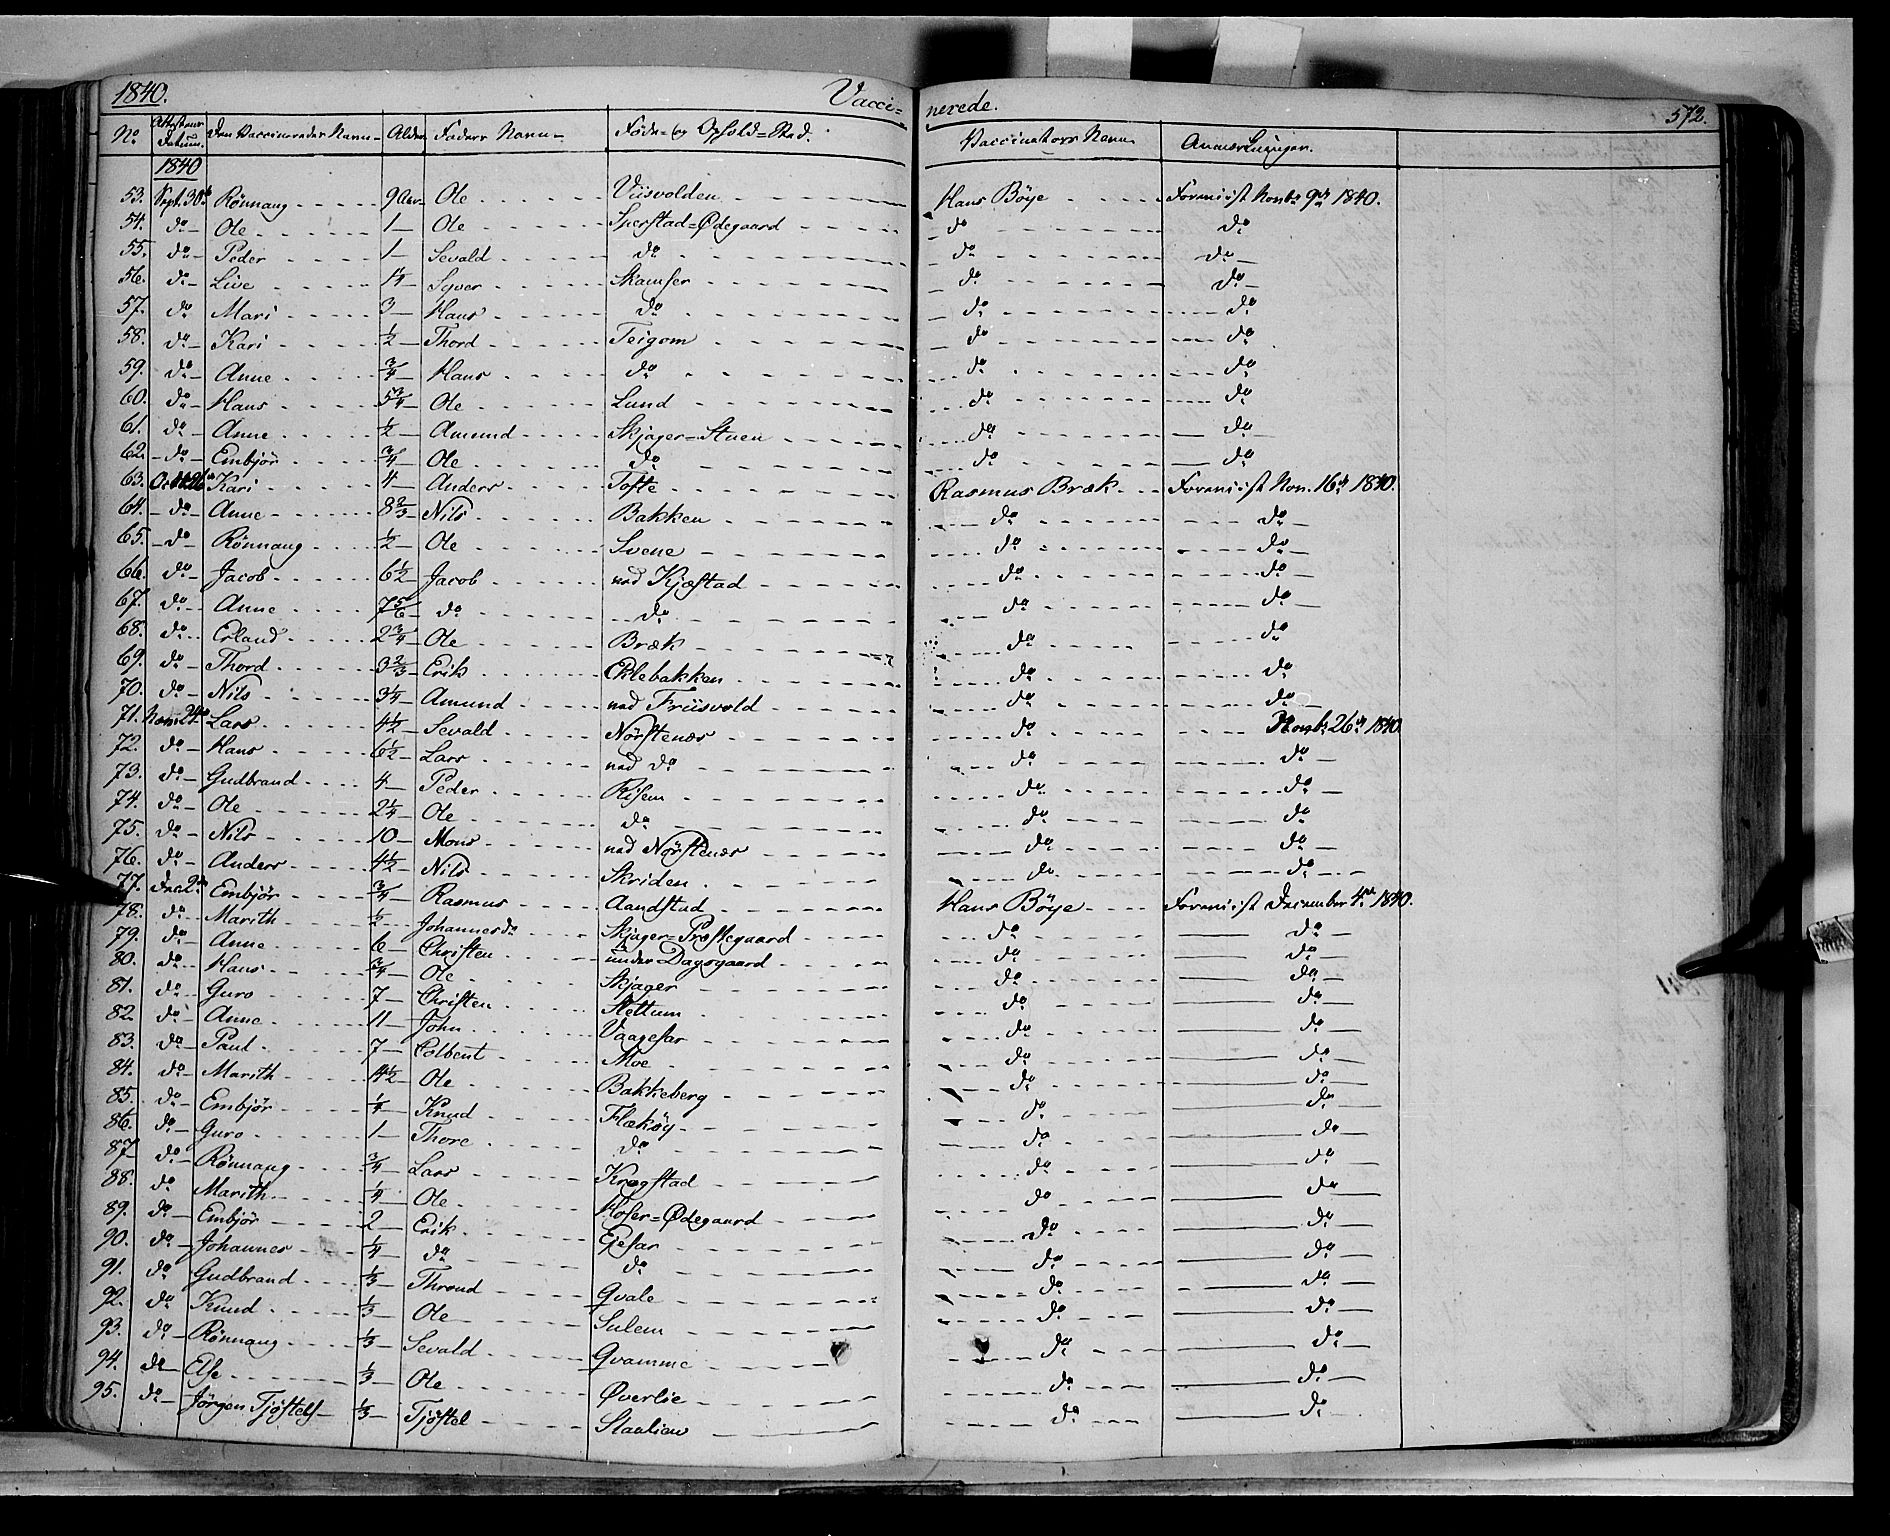 1840. Vacci=nerede. 572.
No Attestens Datum. Den Vaccineredes Navn Alder Faders Navn Føde= og Ophold=Sted. Vaccinateurs Navn Anmærkninger.
1840
53. Sept. 30 Rönnaug 9 Aar Ole Viisvolden Hans Böye Foreviist Novbr 9de 1840.
54. do Ole 1 Ole Sperstad=Ødegaard do do
55. do Peder 1 Sevald do do do
56. do Live 1/4 Syver Skamsar do do
57. do Mari 3 Hans do do do
58. do Kari 1/2 Thord Teigom do do
59. do Anne 3/4 Hans do do do
60. do Hans 5 3/4 Ole Lund do do
61. do Anne 1/2 Amund Skjager=Stuen do do
62. do Embjør 3/4 Ole do do do
63. Kari 4 Anders Tofte Rasmus Bræk Foreviist Nov. 16de 1840.
64. do Anne 8 2/3 Nils Bakken do do
65. do Rönnaug 1/2 Ole Svene do do
66. do Jacob 6 1/2 Jacob ned Kjæstad do do
67. do Anne 7 5/6 do do do do
68. do Erland 2 3/4 Ole Bræk do do
69. do Thord 3 2/3 Erik Eklebakken do do
70. do Nils 3 1/4 Amund ned Friisvold do do
71. Lars 4 1/2 Sevald Nörstenæs do Novbr 26de 1840.
72. do Hans 6 1/2 Lars ned do do do
73. do Gudbrand 4 Peder Risem do do
74. do Ole 2 1/4 Ole do do do
75. do Nils 10 Mons ned Nörstenæs do do
76. do Anders 4 1/2 Nils Skriden do do
77. Dec 2 Embjör 3/4 Rasmus Aandstad Hans Böye Foreviist December 4de 1840.
78. do Marith 1/2 Johannes Skjager=Præstegaard do do
79. do Anne 6 Christen under Dagsgaard do do
80. do Hans 3/4 Ole Skjager do do
81. do Guro 7 Christen Stettum do do
82. do Anne 11 John Vaagesar do do
83. do Paul 7 Colbent Moe do do
84. do Marith 4 1/2 Ole Bakkeberg do do
85. do Embjör 1/4 Knud Flækøy do do
86. do Guro 1 Thore do do do
87. do Rönnaug 3/4 Lars Krogstad do do
88. do Marith 1/4 Ole Hoser=Ødegaard do do
89. do Embjör 2 Erik Ejesar do do
90. do Johannes 1/4 do do do do
91. do Gudbrand 1/3 Thrond Qvale do do
92. do Knud 1/3 Ole Sulem do do
93. do Rönnaug 1/3 Sevald Qvamme do do
94. do Else 1/3 Ole Øverlie do do
95. do Jörgen Tjöstels 1/3 Tjöstel Staalien do do